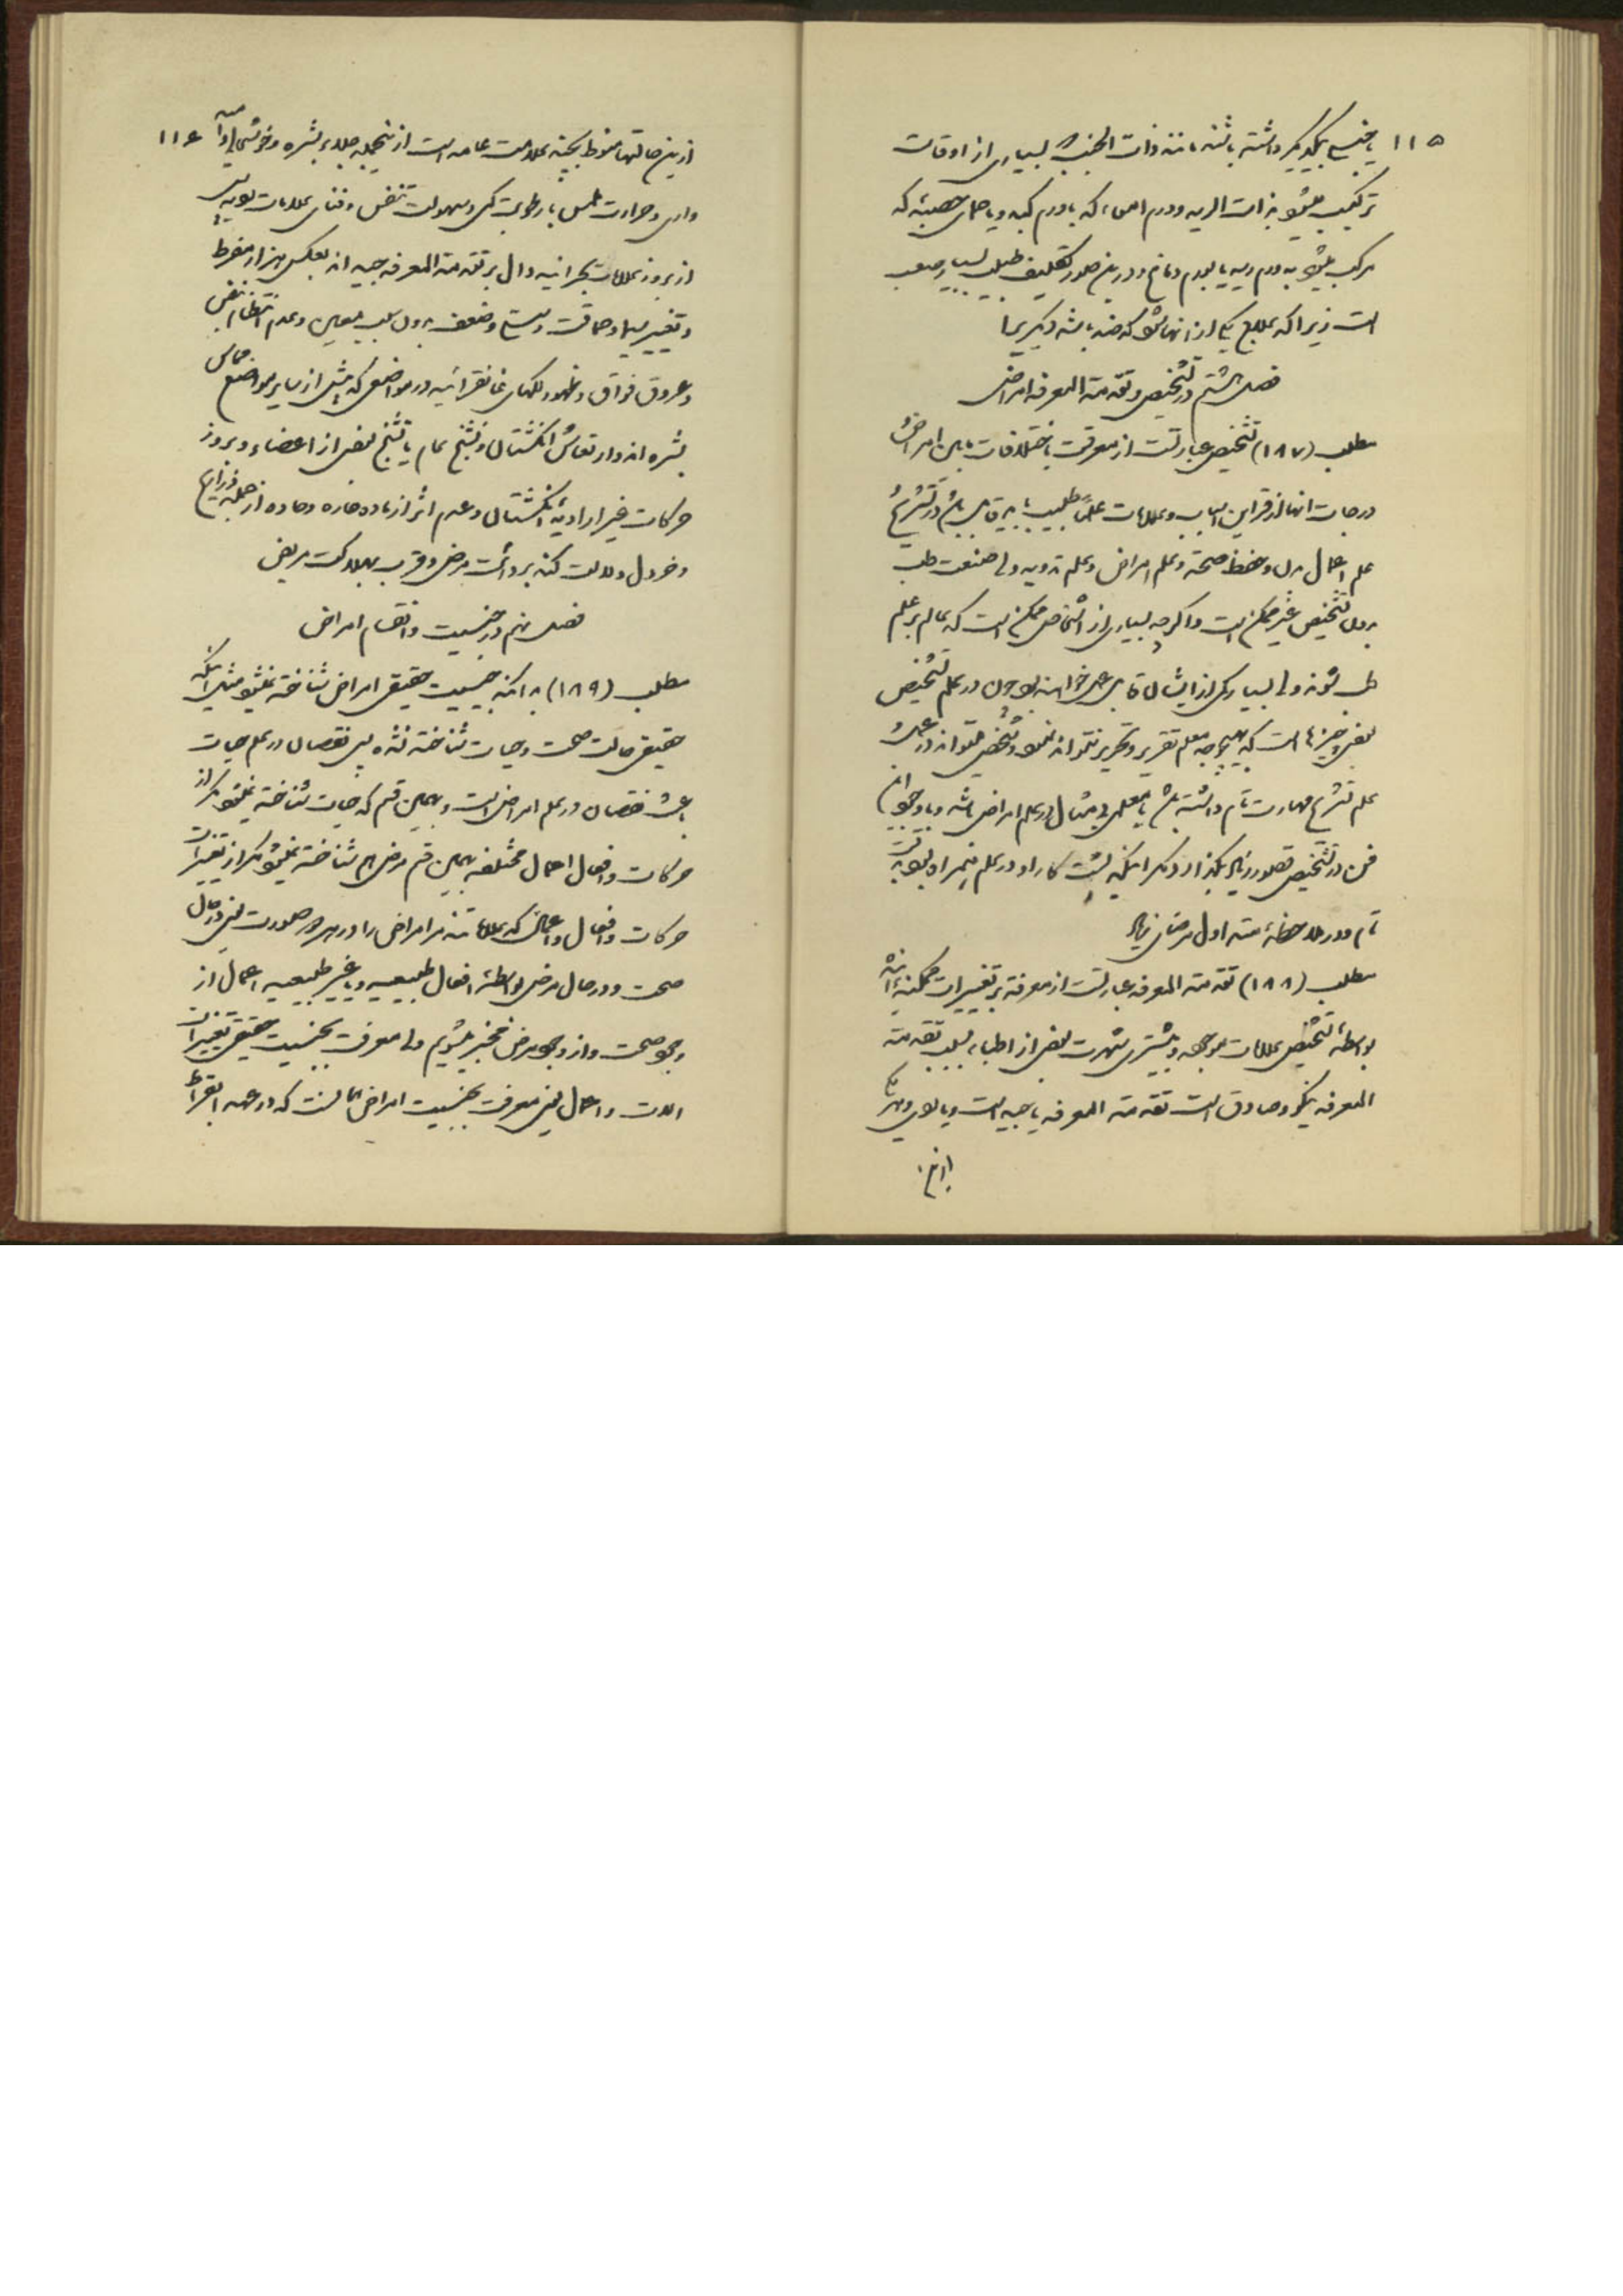 ۱۱۵ با جنس یکدیگر داشته باشند مانند ذات الجنب بسیاری از اوقات
ترکیب میشود بذات الریه و ورم امعاء که با ورم کبد و یا حمای حصبیه که
مرکب میشود به ورم ریه یا بورم دماغ و درین صور تکلیف طبیب بسیار صعب
است زیرا که علاج یکی از آنها میشود که ضد باشد دیگریرا
فصل هشتم در تشخیص و تقدمة المعرفه امراض
مطلب (۱۸۷) تشخیص عبارتست از معرفت باختلافات مابین امراض و
درجات آنها از قراین اسباب و علامات علل طبیب باید قابل باشد در تشریح
علم اعمال بدن و حفظ صحة و علم امراض و علم ادویه ولی صنعت طب
بدون تشخیص غیر ممکن است و اگرچه بسیاری از اشخاص ممکن است که عالم بر علم
طب شوند ولی بسیار کمی از ایشان قابل عمل خواهند بود چون در علم تشخیص
بعضی چیزها است که بهیچوجه معلم تقریر و تحریر نتواند نمود و شخص میتواند در
علم تشریح مهارت تام داشته باشد یا معلمی بیمثال در علم امراض باشد و با وجود آن
فن در تشخیص قصور زیاد بگذارد مگر اینکه پشت کار او در علم
تام و در ملاحظه مدة اول مرضای زیاد
مطلب (۱۸۸) تقدمة المعرفه عبارتست از معرفة بر تغییرات ممکنه آینده
بواسطه تشخیص علامات موجوده و بیشتری شهرت بعضی از اطباء بسبب تقدمة
المعرفه نیکو و صادق است تقدمة المعرفه یا جید است و یا ردی و هر یک
از این
ازین حالتها منوط بچند علامت عامه است از آنجمله جلد و بشره و خوشحالی و آرامی ۱۱۶
واری و حرارت ملمس با رطوبت کمی و سهولت تنفس و فنای علامات
از بروز علامات بحرانیه دال بر تقدمة المعرفه جیده اند بعکس هزال مفرط
و تغییر سیما و حماقت و ضعف بدون سبب معین و عدم انتظام نبض
و عروق فواق و ظهور لکهای غانقرائیه در مواضعی که بیش از سایر مواضع مماس
بشره اند و ارتعاش انگشتان و تشنج تمام یا تشنج بعضی از اعضاء و بروز
حرکات غیر ارادیه انگشتان و عدم اثر از ماده حاره و حاده از جمله ذراریح
و خردل دلالت کند بر دائت مرض و قرب بهلاکت مریض
فصل نهم در جنسیت و انقسام امراض
مطلب (۱۸۹) بدانکه جنسیت حقیقی امراض شناخته نمیشود مثل اینکه
حقیقی حالت صحت و حیات شناخته نشده پس نقصان در علم حیات
باعث نقصان در علم امراض است و بهمین قسم که حیات شناخته نمیشود مگر از
حرکات و افعال اعمال مختلفه بهمین قسم مرض هم شناخته نمیشود مگر از تغییرات
حرکات و افعال و اعمال که علامات تند مر امراض را و در هر دو صورت یعنی در حال
صحت و در حال مرض بواسطه افعال طبیعیه و یا غیر طبیعیه اعمال از
وجود صحت و از وجود مرض مخبر میشویم ولی معرفت بجنسیت حقیقی تغییرات
الات و اعمال یعنی معرفت بجنسیت امراض همانست که در عهد ابقراط